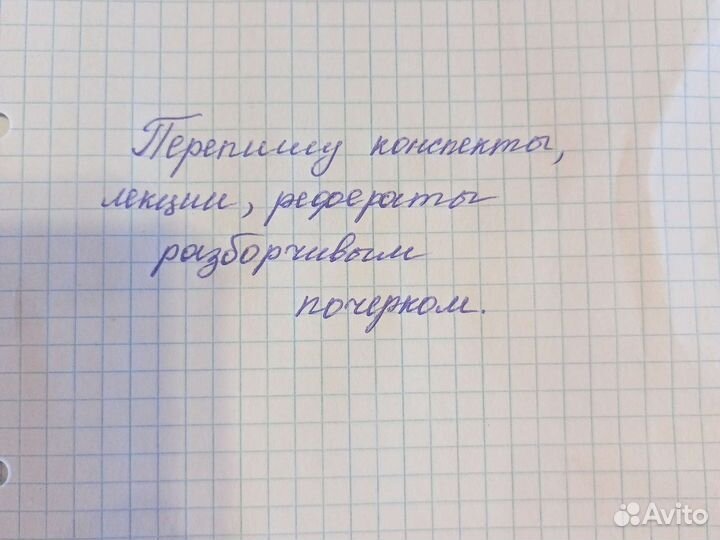 Перепишу конспекты,
лекции, рефераты
разборчивым
почерком.
Avito